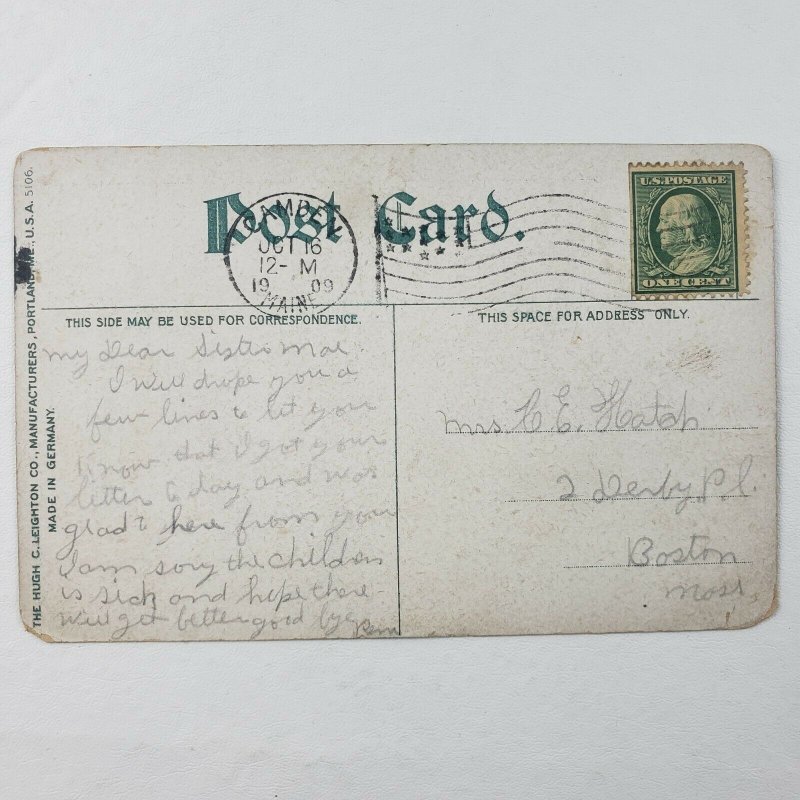 Post Card.
CAMDEN
OCT 16
12- M
19 09
MAINE
U.S. POSTAGE
ONE CENT
THIS SIDE MAY BE USED FOR CORRESPONDENCE.
THIS SPACE FOR ADDRESS ONLY.
THE HUGH C. LEIGHTON CO., MANUFACTURERS, PORTLAND, ME., U.S.A. 5106.
MADE IN GERMANY.
My Dear Sister Mae
I will drope you a
few lines to let you
know that I got your
letter to day and was
glad to here from you
I am sory the children
is sick and hope there
will get better good bye
Mrs C E. Hatch
2 Derby Pl.
Boston
Mass.